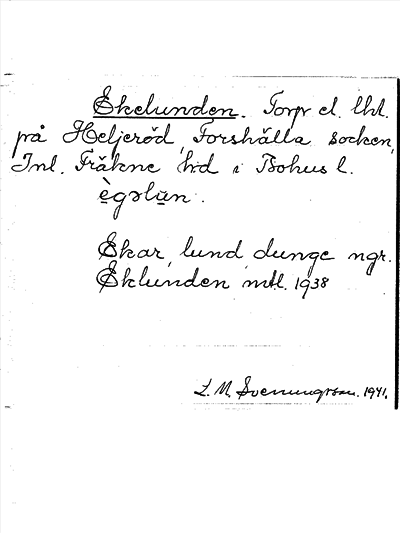 Ekelunden. Torp el. lht.
på Heljeröd, Forshälla socken,
Inl. Fräkne hd i Bohus l.
ègəlu̇n.
Ekar, lund, dunge ngr.
Eklunden mtl. 1938
L. M. Svenungsson. 1941.